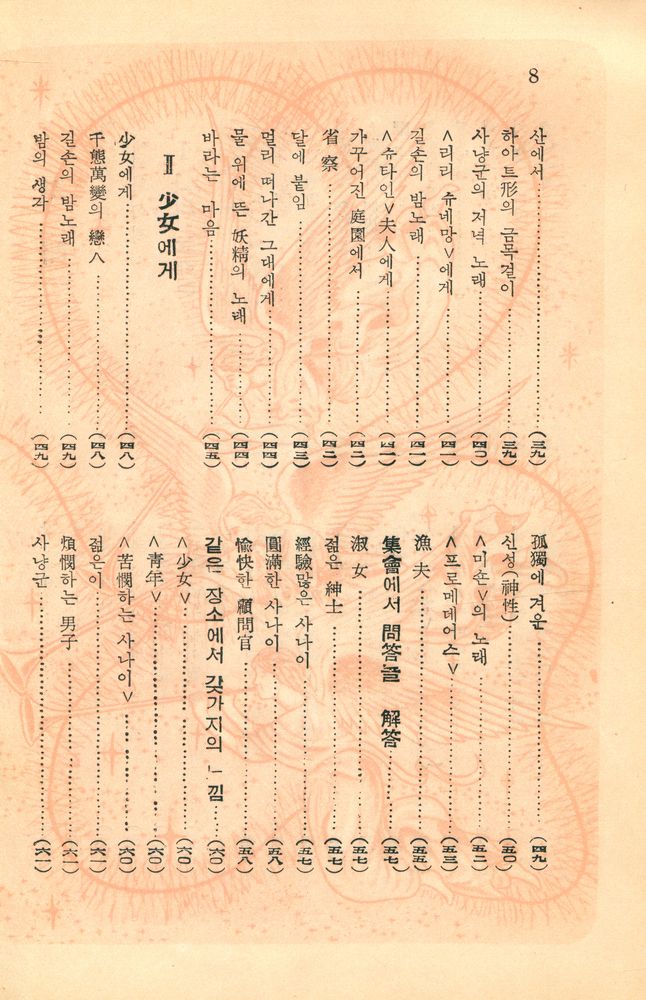 8
산에서……………………(三九)
하아트形의 금목걸이……………………(三九)
사냥군의 저녁 노래……………………(四〇)
<리리 슈네망>에게……………………(四一)
길손의 밤노래……………………(四一)
<슈타인>夫人에게……………………(四一)
가꾸어진 庭園에서……………………(四二)
省察……………………(四二)
달에 붙임……………………(四三)
멀리 떠나간 그대에게……………………(四四)
물 위에 뜬 妖精의 노래……………………(四四)
바라는 마음……………………(四五)
Ⅱ 少女에게
少女에게……………………(四八)
千態萬變의 戀人……………………(四八)
길손의 밤노래……………………(四九)
밤의 생각……………………(四九)
孤獨에 겨운……………………(四九)
신성(神性)……………………(五〇)
<미숀>의 노래……………………(五二)
<프로메데어스>……………………(五三)
漁夫……………………(五五)
集會에서 問答을 解答……………………(五七)
淑女……………………(五七)
젊은 紳士……………………(五七)
經驗많은 사나이……………………(五七)
圓滿한 사나이……………………(五八)
愉快한 顧問官……………………(五八)
같은 장소에서 갖가지의 느낌……………………(六〇)
<少女>……………………(六〇)
<靑年>……………………(六〇)
<苦憫하는 사나이>……………………(六〇)
젊은이……………………(六一)
煩憫하는 男子……………………(六一)
사냥군……………………(六一)